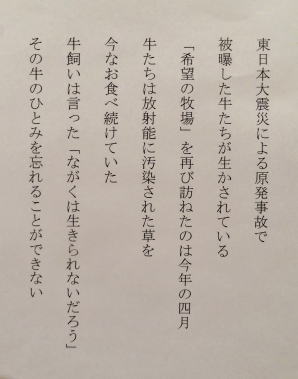 東日本大震災による原発事故で
被曝した牛たちが生かされている
「希望の牧場」を再び訪ねたのは今年の四月
牛たちは放射能に汚染された草を
今なお食べ続けていた
牛飼いは言った「ながくは生きられないだろう」
その牛のひとみを忘れることができない